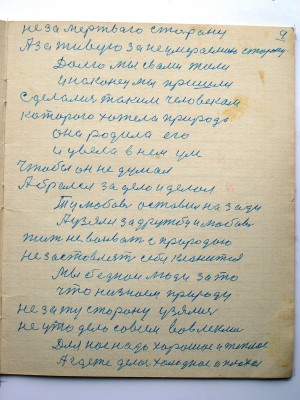 9
не за мертваго сторону
А за живую за неумераемаю сторону
Долго мы с вами жили
и наконец мы пришли
Сделался таким человекам
которого хотела природа
она родила его
и увела в нем ум
Чтобы он не думал
А брался за дело и делал
Ту любовь оставил на зади
А узяли за дружбу и любовь
жить не воевать с природою
не заставлять себя клонится
Мы бедном люди за то
что ни знаем природу
не за ту сторону узялись
не у то дело совсем вовлекли
Для нас надо хорошое и теплое
А где те дела холодное и плохое